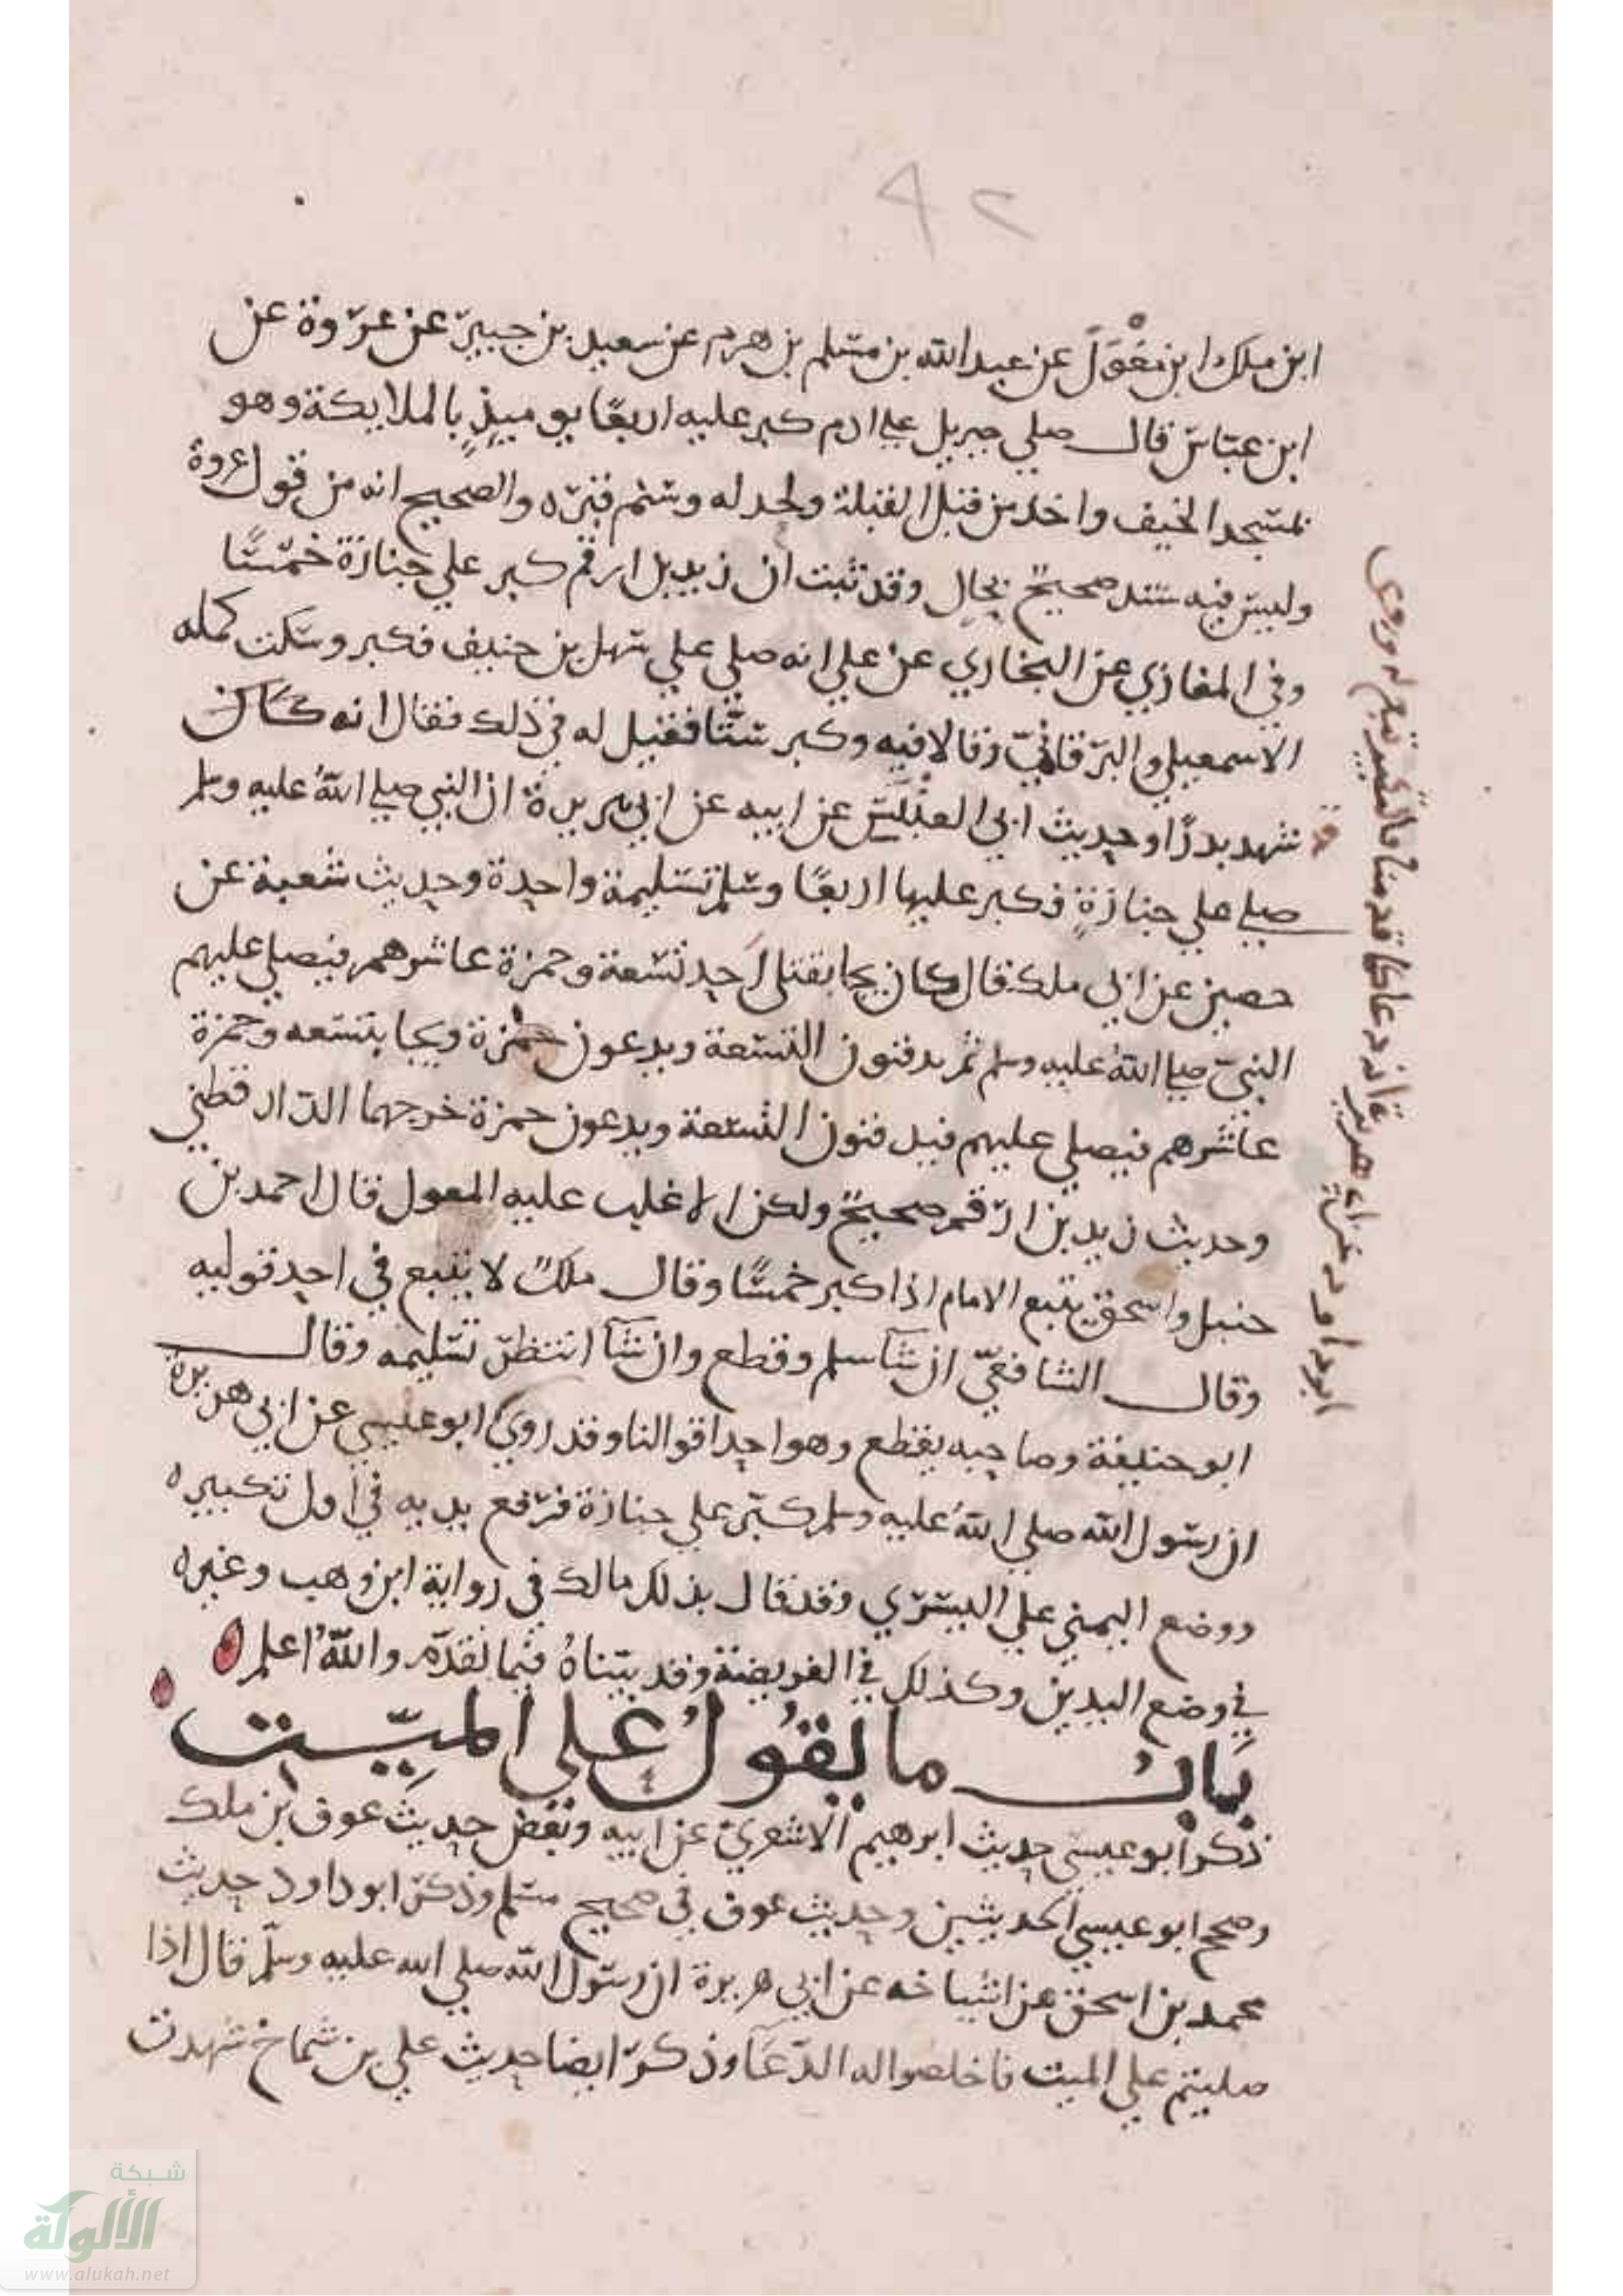 ٩٢
ابن ملك ابن مغول عن عبد الله بن مسلم بن هرم عن سعيد بن جبير عن عروة عن
ابن عباس قال صلي جبريل علي ادم كبر عليه اربعا يوميذ بالملايكة وهو
بمسجد الخيف واخذ من قبل القبلة ولحد له وسنم قبره والصحيح انه من قول عروة
وليس فيه سند صحيح بحال وقد ثبت ان زيد بن ارقم كبر علي جنازة خمسا
وفي المغازي عن البخاري عن علي انه صلي علي سهل بن حنيف فكبر وسكت كمله
الاسمعيلي والبرقاني وقالا فيه وكبر ستا فقيل له في ذلك فقال انه كان
شهد بدرا وحديث ابي العنبس عن ابيه عن ابي هريرة ان النبي صلي الله عليه وسلم
صلي علي جنازة فكبر عليها اربعا وسلم تسليمة واحدة وحديث شعبة عن
حصين عن ابي ملك قال كان يجا بقتلي احد تسعة وحمزة عاشرهم فيصلي عليهم
النبي صلي الله عليه وسلم ثم يدفنون التسعة ويدعون حمزة ويجا بتسعه وحمزة
عاشرهم فيصلي عليهم فيدفنون التسعة ويدعون حمزة خرجهما الدارقطني
وحديث زيد بن ارقم صحيح ولكن الاغلب عليه المعول قال احمد بن
حنبل واسحق يتبع الامام اذا كبر خمسا وقال ملك لا يتبع في احد قوليه
وقال الشافعي ان شآ سلم وقطع وان شآ انتظر تسليمه وقال
ابو حنيفة وصاحبه يقطع وهو احد اقوالنا وقد روي ابو عيسي عن ابي هريرة
ان رسول الله صلي الله عليه وسلم كبر علي جنازة فرفع يديه في اول تكبيره
ووضع اليمني علي اليسري وقد قال بذلك مالك في رواية ابن وهب وغيره
في وضع اليدين وكذلك في الفريضة وقد بيناه فيما تقدم والله اعلم
باب ما يقول علي الميت
ذكر ابو عيسي حديث ابرهيم الاشعري عن ابيه ونقض حديث عوف بن ملك
وصحح ابو عيسي الحديثين وحديث عوف في صحيح مسلم وذكر ابو داود حديث
محمد بن اسحق عن اشياخه عن ابي هريرة ان رسول الله صلي الله عليه وسلم قال اذا
صليتم علي الميت فاخلصوا له الدعا وذكر ايضا حديث علي بن شماخ شهدت
شبكة
الألوكة
www.alukah.net